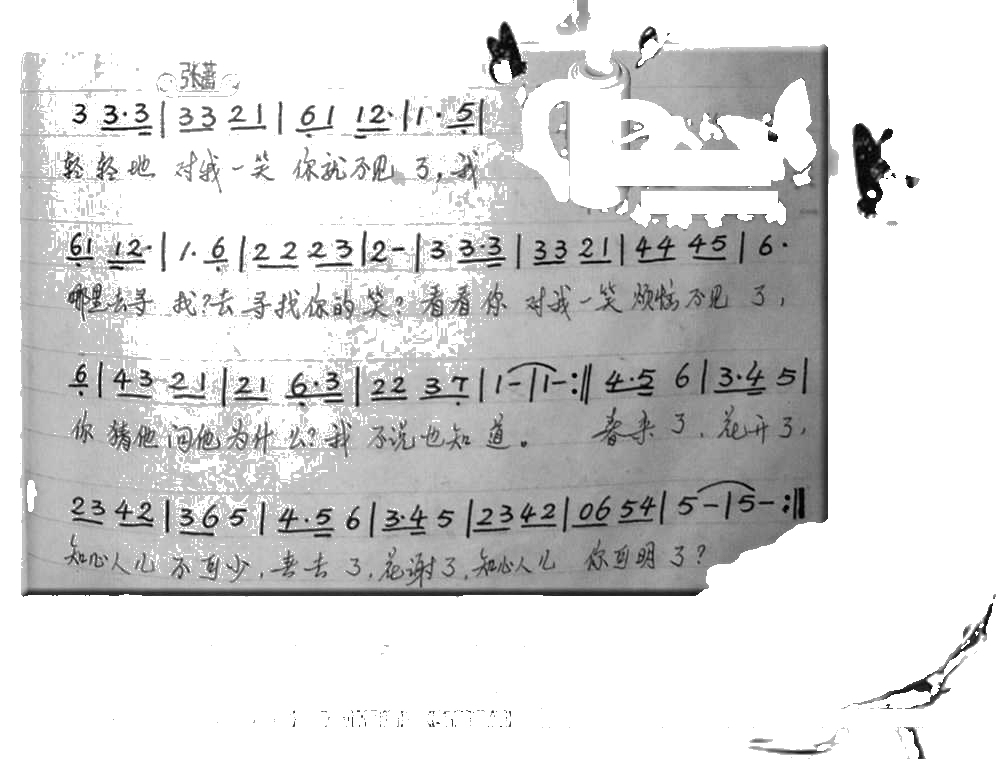 张蔷
3 3·3 | 33 21 | 61 12· | 1· 5 |
轻轻地 对我一笑 你就不见了,我
61 12· | 1· 6 | 22 23 | 2 – | 3 3·3 | 33 21 | 44 45 | 6·
哪里去寻 我?去寻找你的笑?看看你 对我一笑 烦恼不见 了,
6 | 43 21 | 21 6·3 | 22 37 | 1 – | 1 – :‖ 4·5 6 | 3·4 5 |
你 猜他问他为什么?我 不说也知 道。 春来了,花开了,
23 42 | 36 5 | 4·5 6 | 3·4 5 | 23 42 | 06 54 | 5 – | 5 – :‖
知心人儿 不可少,春去了,花谢了,知心人儿 你可明了?